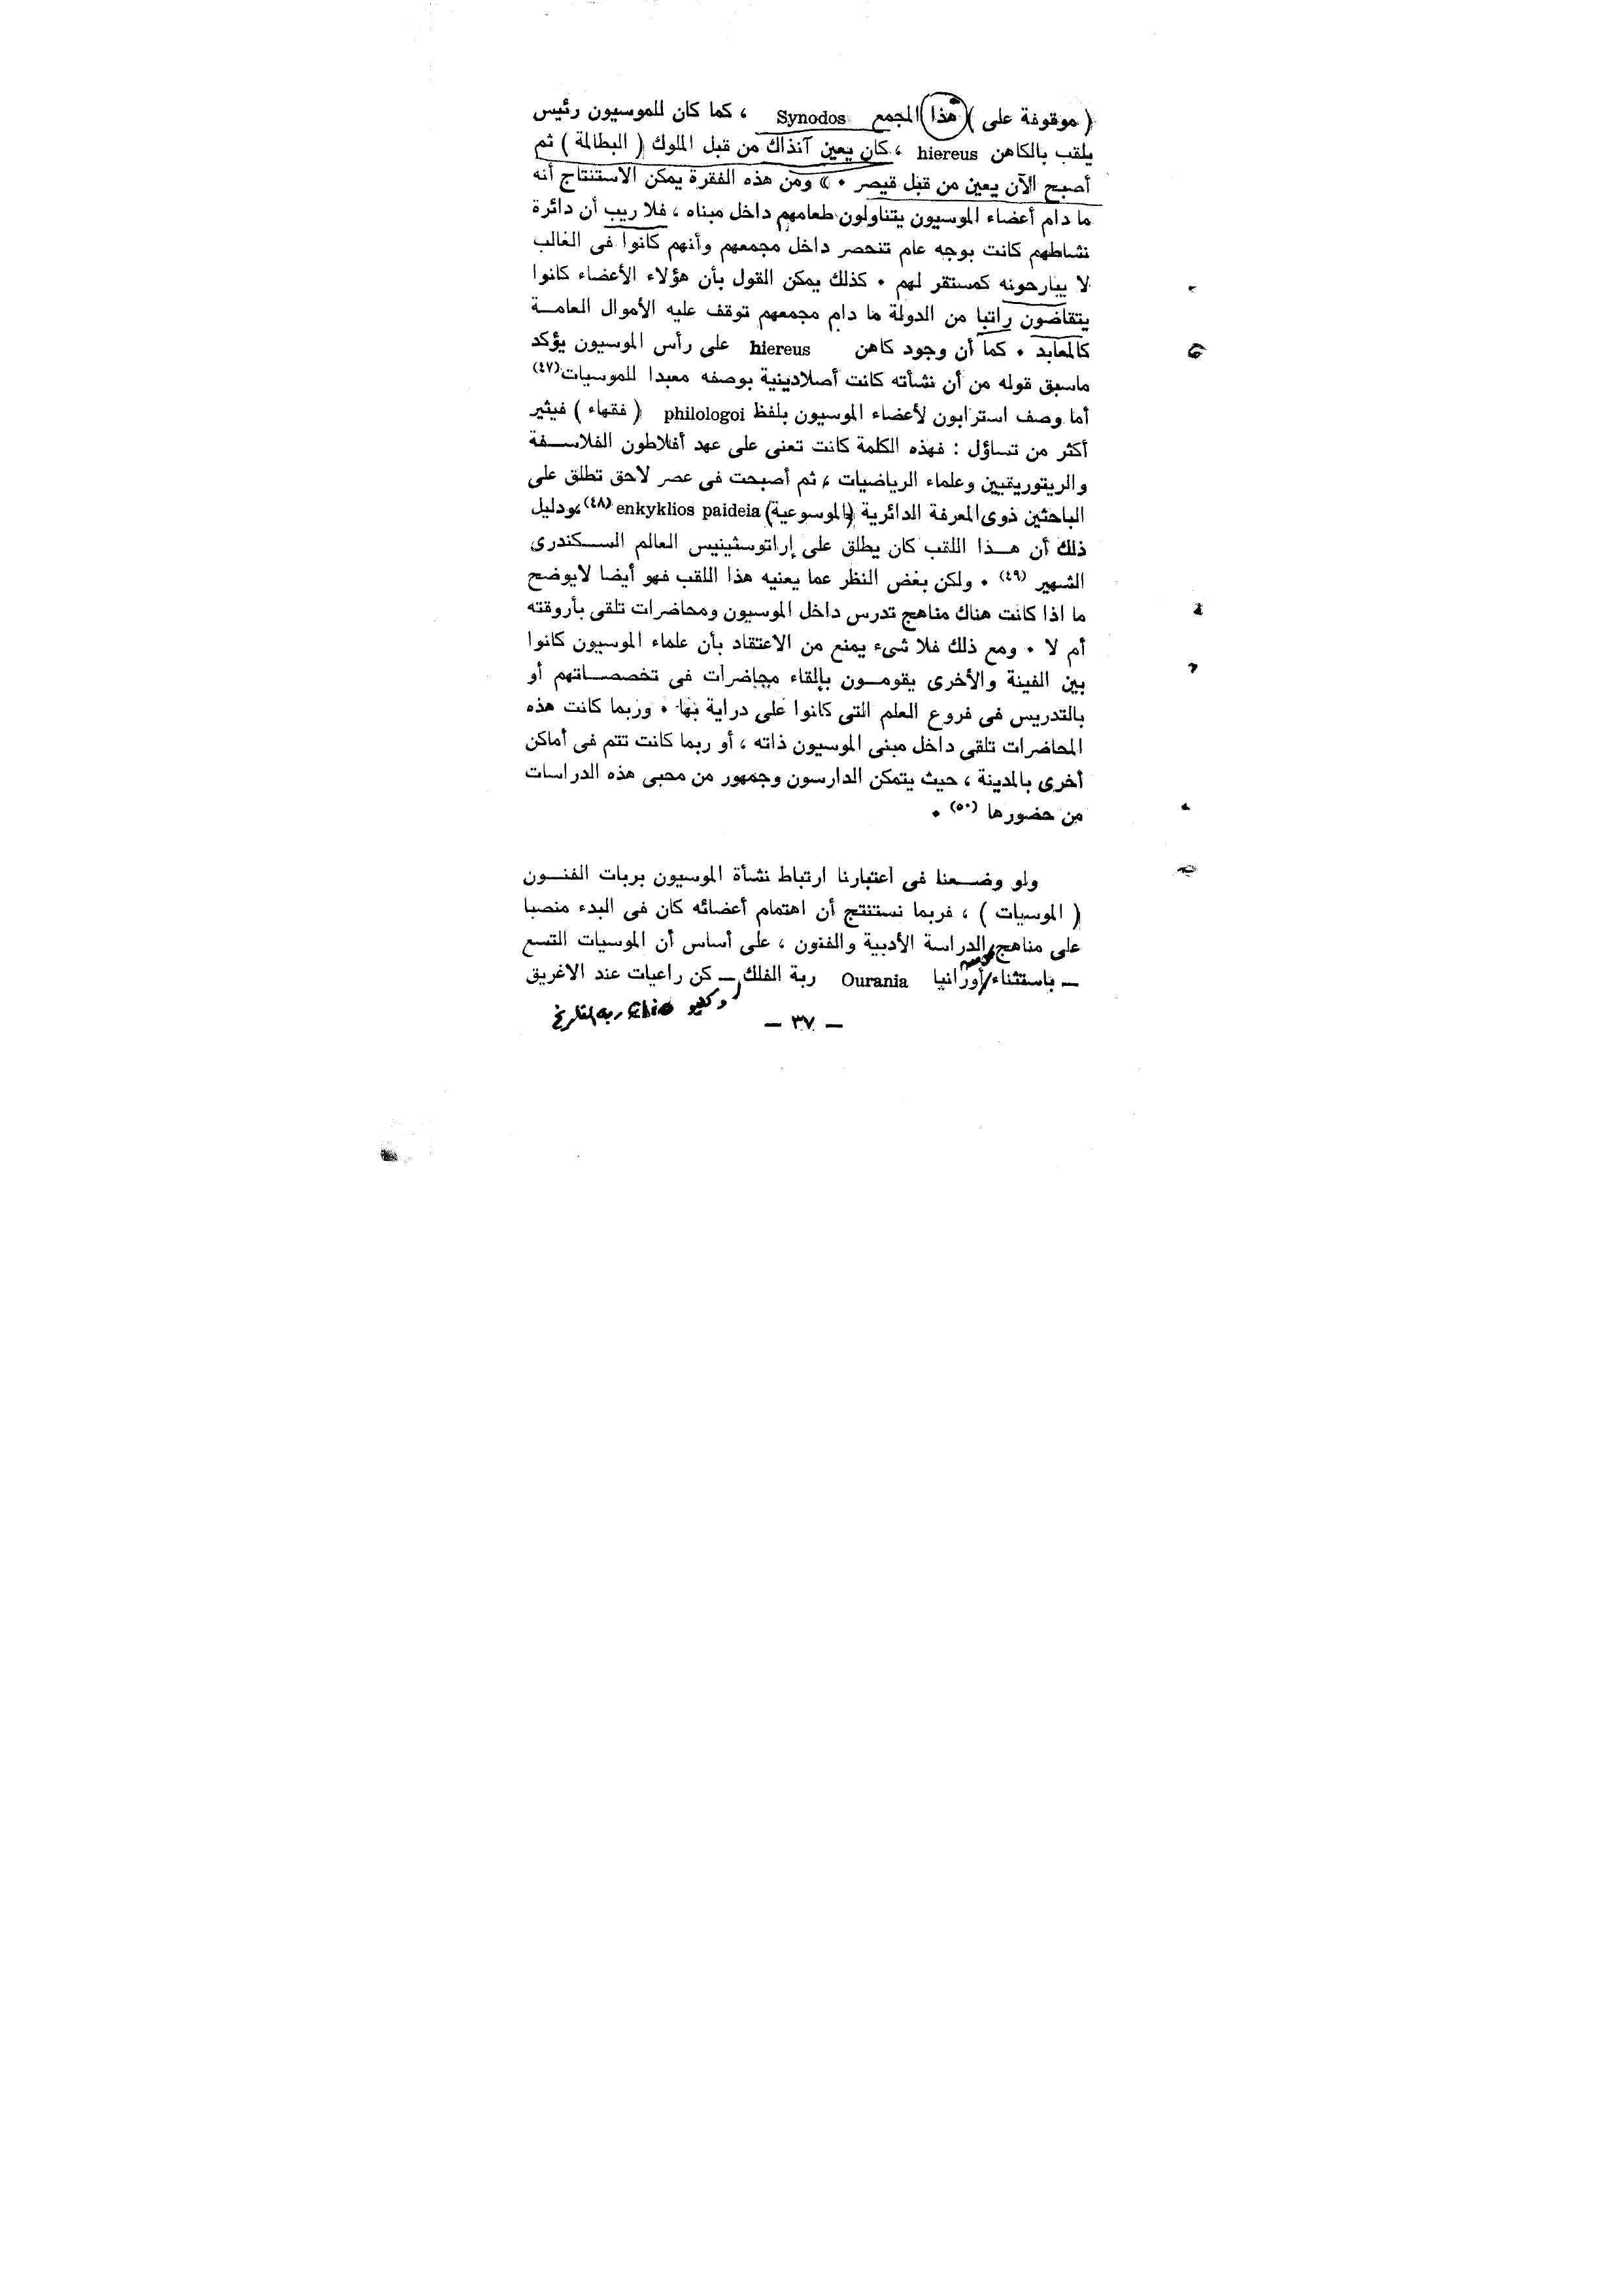 ( موقوفة على ) هذا المجمع Synodos ، كما كان للموسيون رئيس
يلقب بالكاهن hiereus ، كان يعين آنذاك من قبل الملوك ( البطالمة ) ثم
أصبح الآن يعين من قبل قيصر ٠ » ومن هذه الفقرة يمكن الاستنتاج أنه
ما دام أعضاء الموسيون يتناولون طعامهم داخل مبناه ، فلا ريب أن دائرة
نشاطهم كانت بوجه عام تنحصر داخل مجمعهم وأنهم كانوا فى الغالب
لا يبارحونه كمستقر لهم ٠ كذلك يمكن القول بأن هؤلاء الأعضاء كانوا
يتقاضون راتبا من الدولة ما دام مجمعهم توقف عليه الأموال العامــة
كالمعابد ٠ كما أن وجود كاهن hiereus على رأس الموسيون يؤكد
ماسبق قوله من أن نشأته كانت أصلادينية بوصفه معبدا للموسيات(٤٧)
أما وصف استرابون لأعضاء الموسيون بلفظ philologoi ( فقهاء ) فيثير
أكثر من تساؤل : فهذه الكلمة كانت تعنى على عهد أفلاطون الفلاســفة
والريتوريقيين وعلماء الرياضيات ، ثم أصبحت فى عصر لاحق تطلق على
الباحثين ذوى المعرفة الدائرية (الموسوعية) enkyklios paideia (٤٨)،ودليل
ذلك أن هــذا اللقب كان يطلق على إراتوسثينيس العالم الســكندرى
الشهير (٤٩) ٠ ولكن بغض النظر عما يعنيه هذا اللقب فهو أيضا لايوضح
ما اذا كانت هناك مناهج تدرس داخل الموسيون ومحاضرات تلقى بأروقته
أم لا ٠ ومع ذلك فلا شىء يمنع من الاعتقاد بأن علماء الموسيون كانوا
بين الفينة والأخرى يقومــون بإلقاء محاضرات فى تخصصــاتهم أو
بالتدريس فى فروع العلم التى كانوا على دراية بها ٠ وربما كانت هذه
المحاضرات تلقى داخل مبنى الموسيون ذاته ، أو ربما كانت تتم فى أماكن
أخرى بالمدينة ، حيث يتمكن الدارسون وجمهور من محبى هذه الدراسات
من حضورها (٥٠) ٠
ولو وضــعنا فى اعتبارنا ارتباط نشأة الموسيون بربات الفنــون
( الموسيات ) ، فربما نستنتج أن اهتمام أعضائه كان فى البدء منصبا
على مناهج الدراسة الأدبية والفنون ، على أساس أن الموسيات التسع
ــ باستثناء أورانيا Ourania ربة الفلك ــ كن راعيات عند الاغريق
وكليو Clio ربة التاريخ
ــ ٣٧ ــ